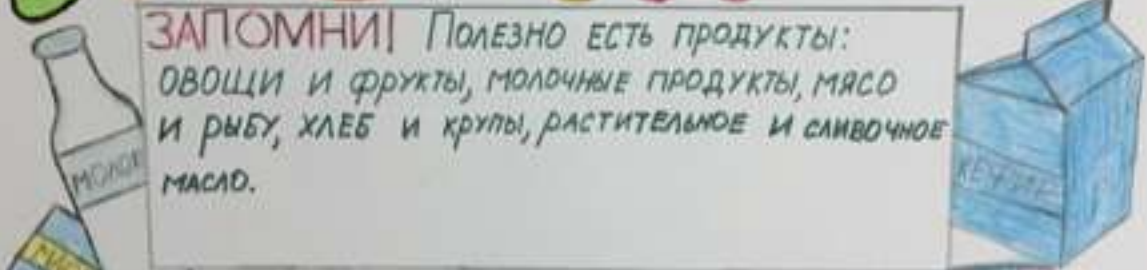 ЗАПОМНИ! Полезно есть продукты:
овощи и фрукты, молочные продукты, мясо
и рыбу, хлеб и крупы, растительное и сливочное
масло.
МОЛОК
КЕФИР